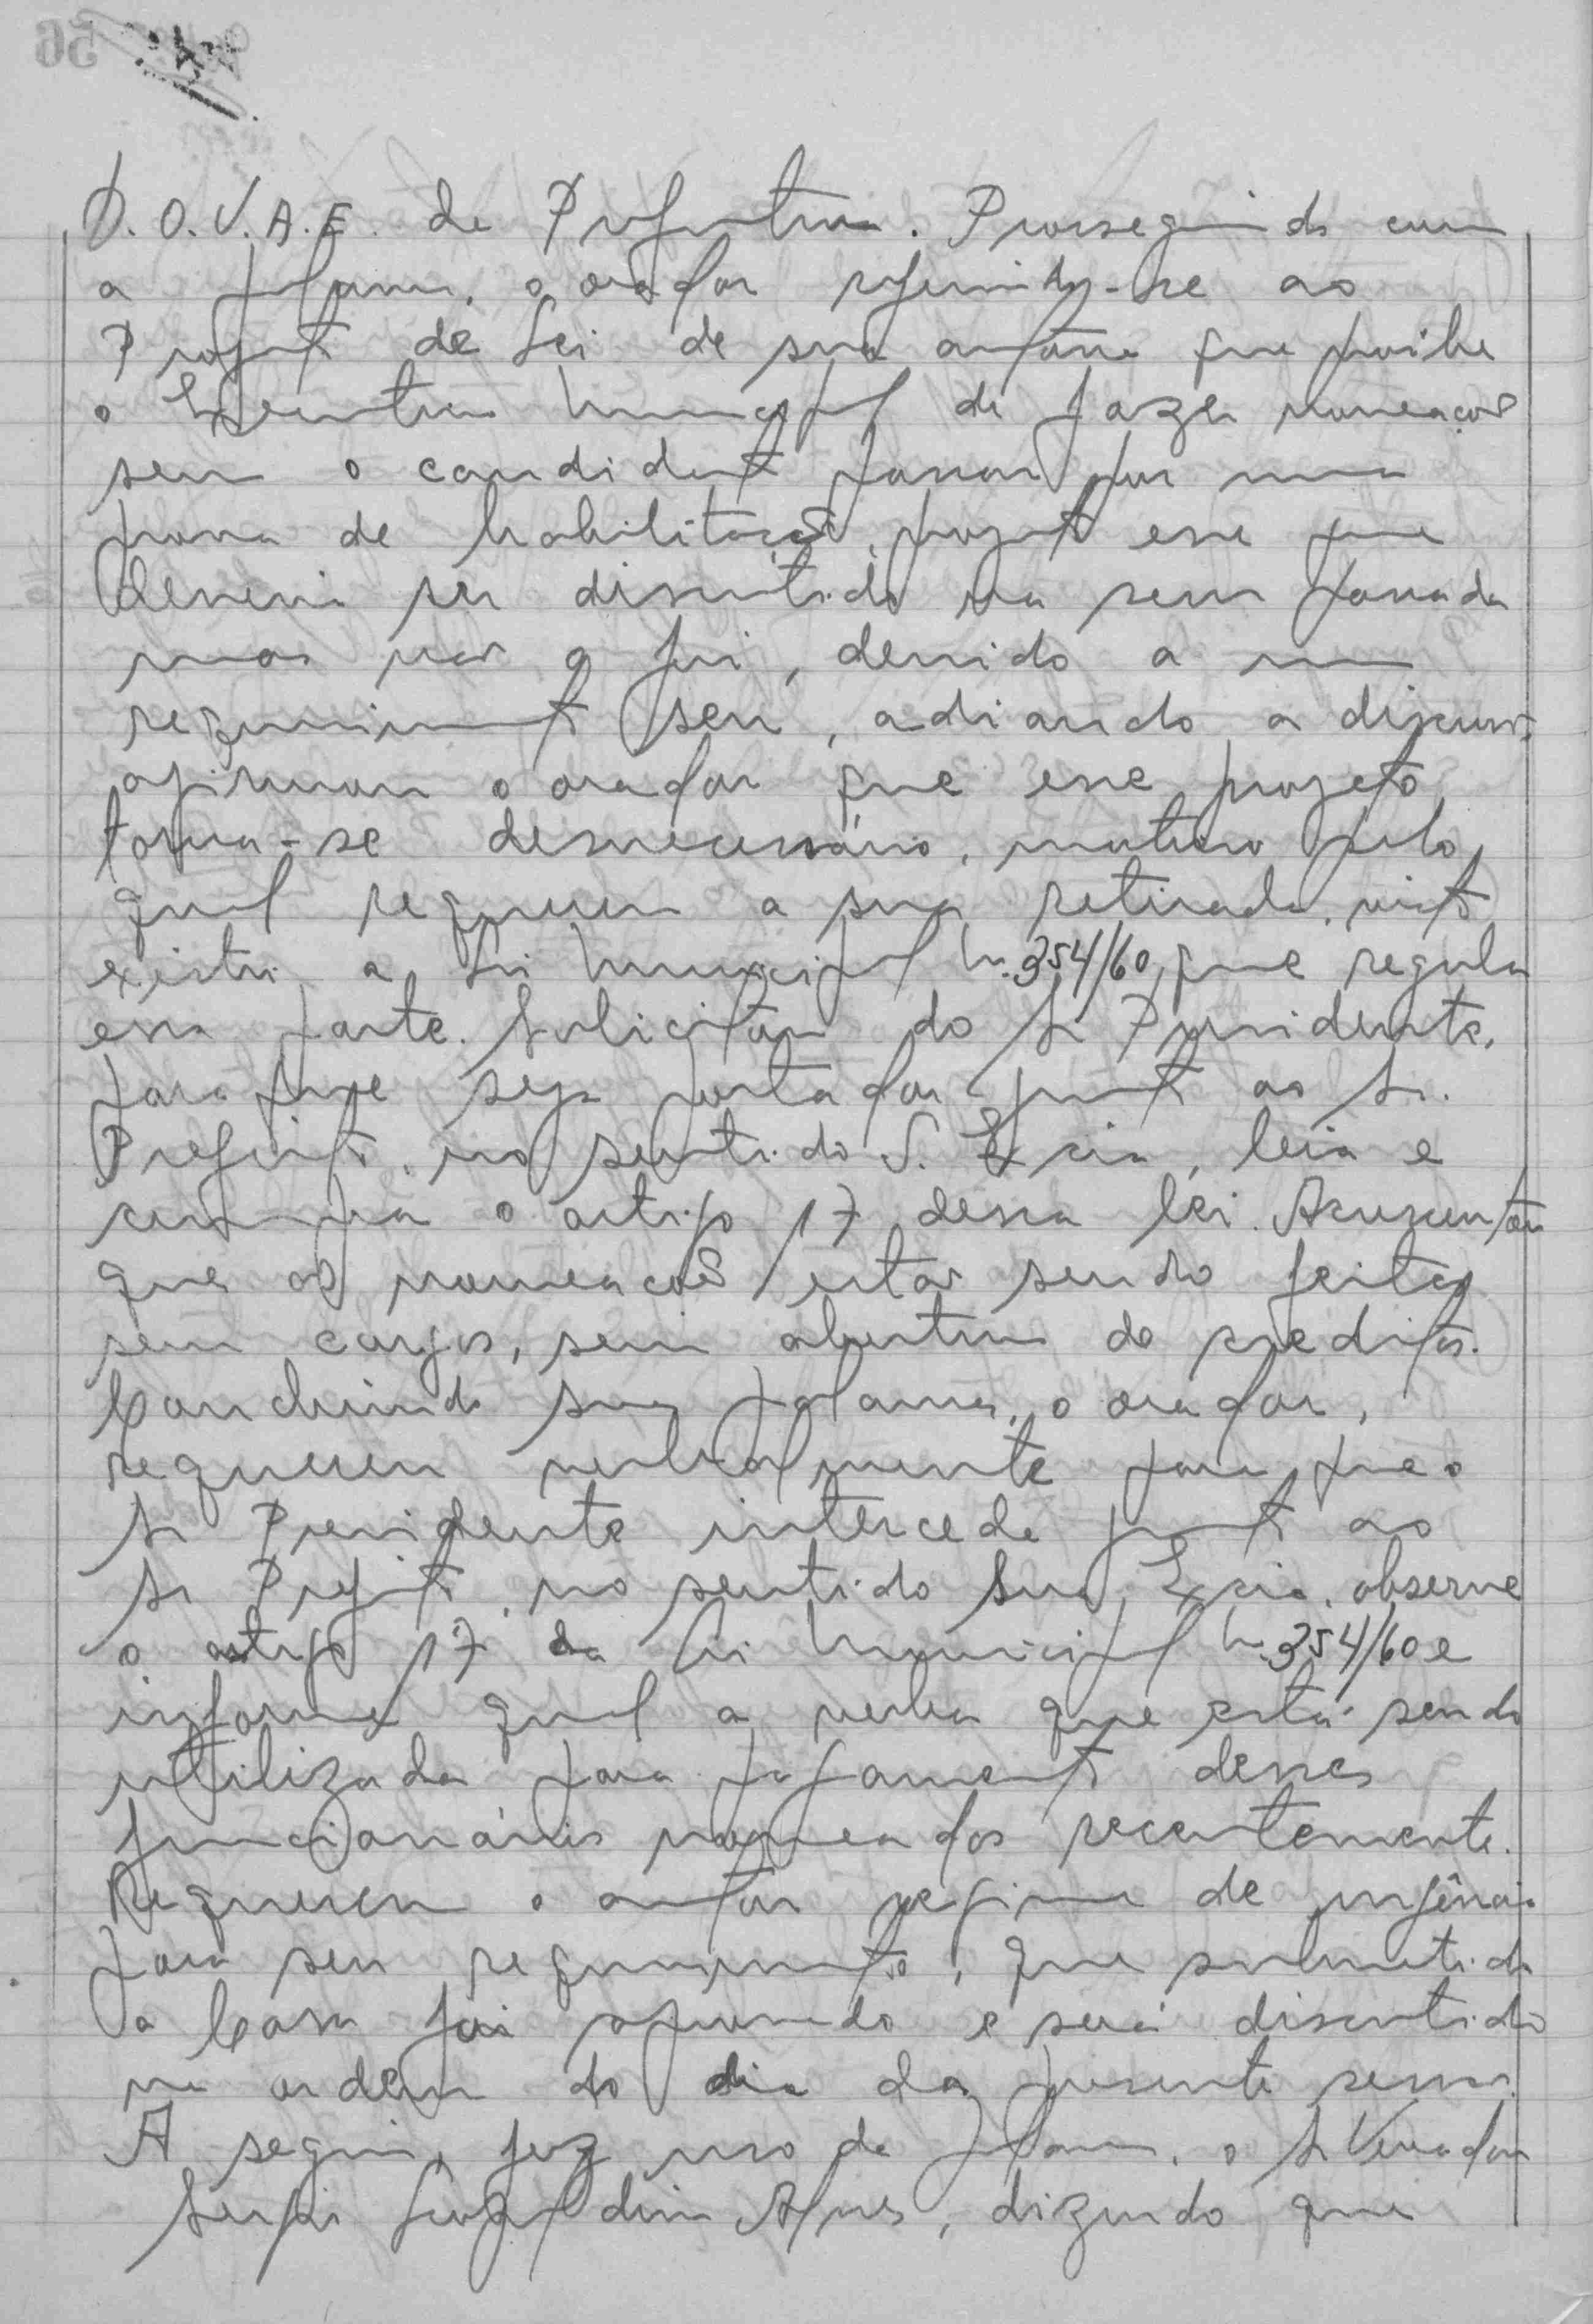 D.O.V.A.E. da Prefeitura. Prosseguindo com
a palavra, o orador referindo-se ao
Projeto de Lei de sua autoria que proibe
o Executivo Municipal de fazer nomeações
sem o candidato passar por uma
prova de habilitação, projeto esse que
deveria ser discutido na sessão passada
mas não o foi, devido a um
requerimento seu, adiando a discussão,
afirmou o orador que esse projeto
torna-se desnecessário, motivo pelo
qual requereu a sua retirada, visto
existir a Lei Municipal n. 354/60, que regula
essa parte. Solicitou do Sr Presidente,
para que seja portador junto ao Sr.
Prefeito, no sentido S. Excia, leia e
cumpra o artigo 17 dessa lei. Acrescentou
que as nomeações estão sendo feitas
sem cargos, sem abertura de creditos.
Concluindo sua palavra, o orador,
requereu verbalmente para que o
Sr Presidente interceda junto ao
Sr Prefeito, no sentido Sua Excia, observe
o artigo 17 da Lei Municipal n. 354/60 e
informe qual a verba que está sendo
utilizada para pagamento desses
funcionários nomeados recentemente.
Requereu o autor regime de urgência
para seu requerimento, que submetido
a Casa foi aprovado e será discutido
na ordem do dia da presente sessão.
A seguir, fez uso da palavra, o Sr Vereador
Sergio dim Alves, dizendo que